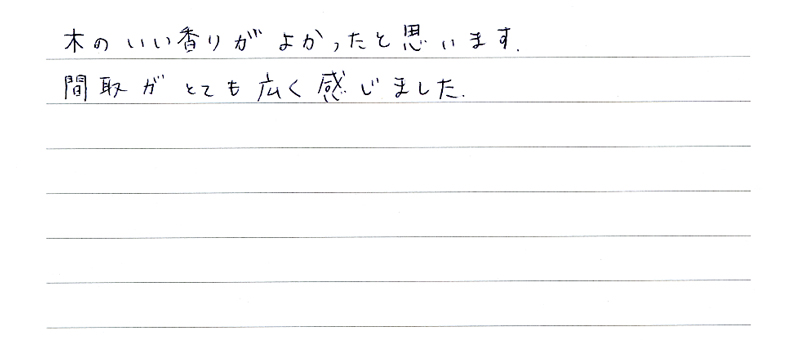 木のいい香りがよかったと思います.
間取がとても広く感じました.